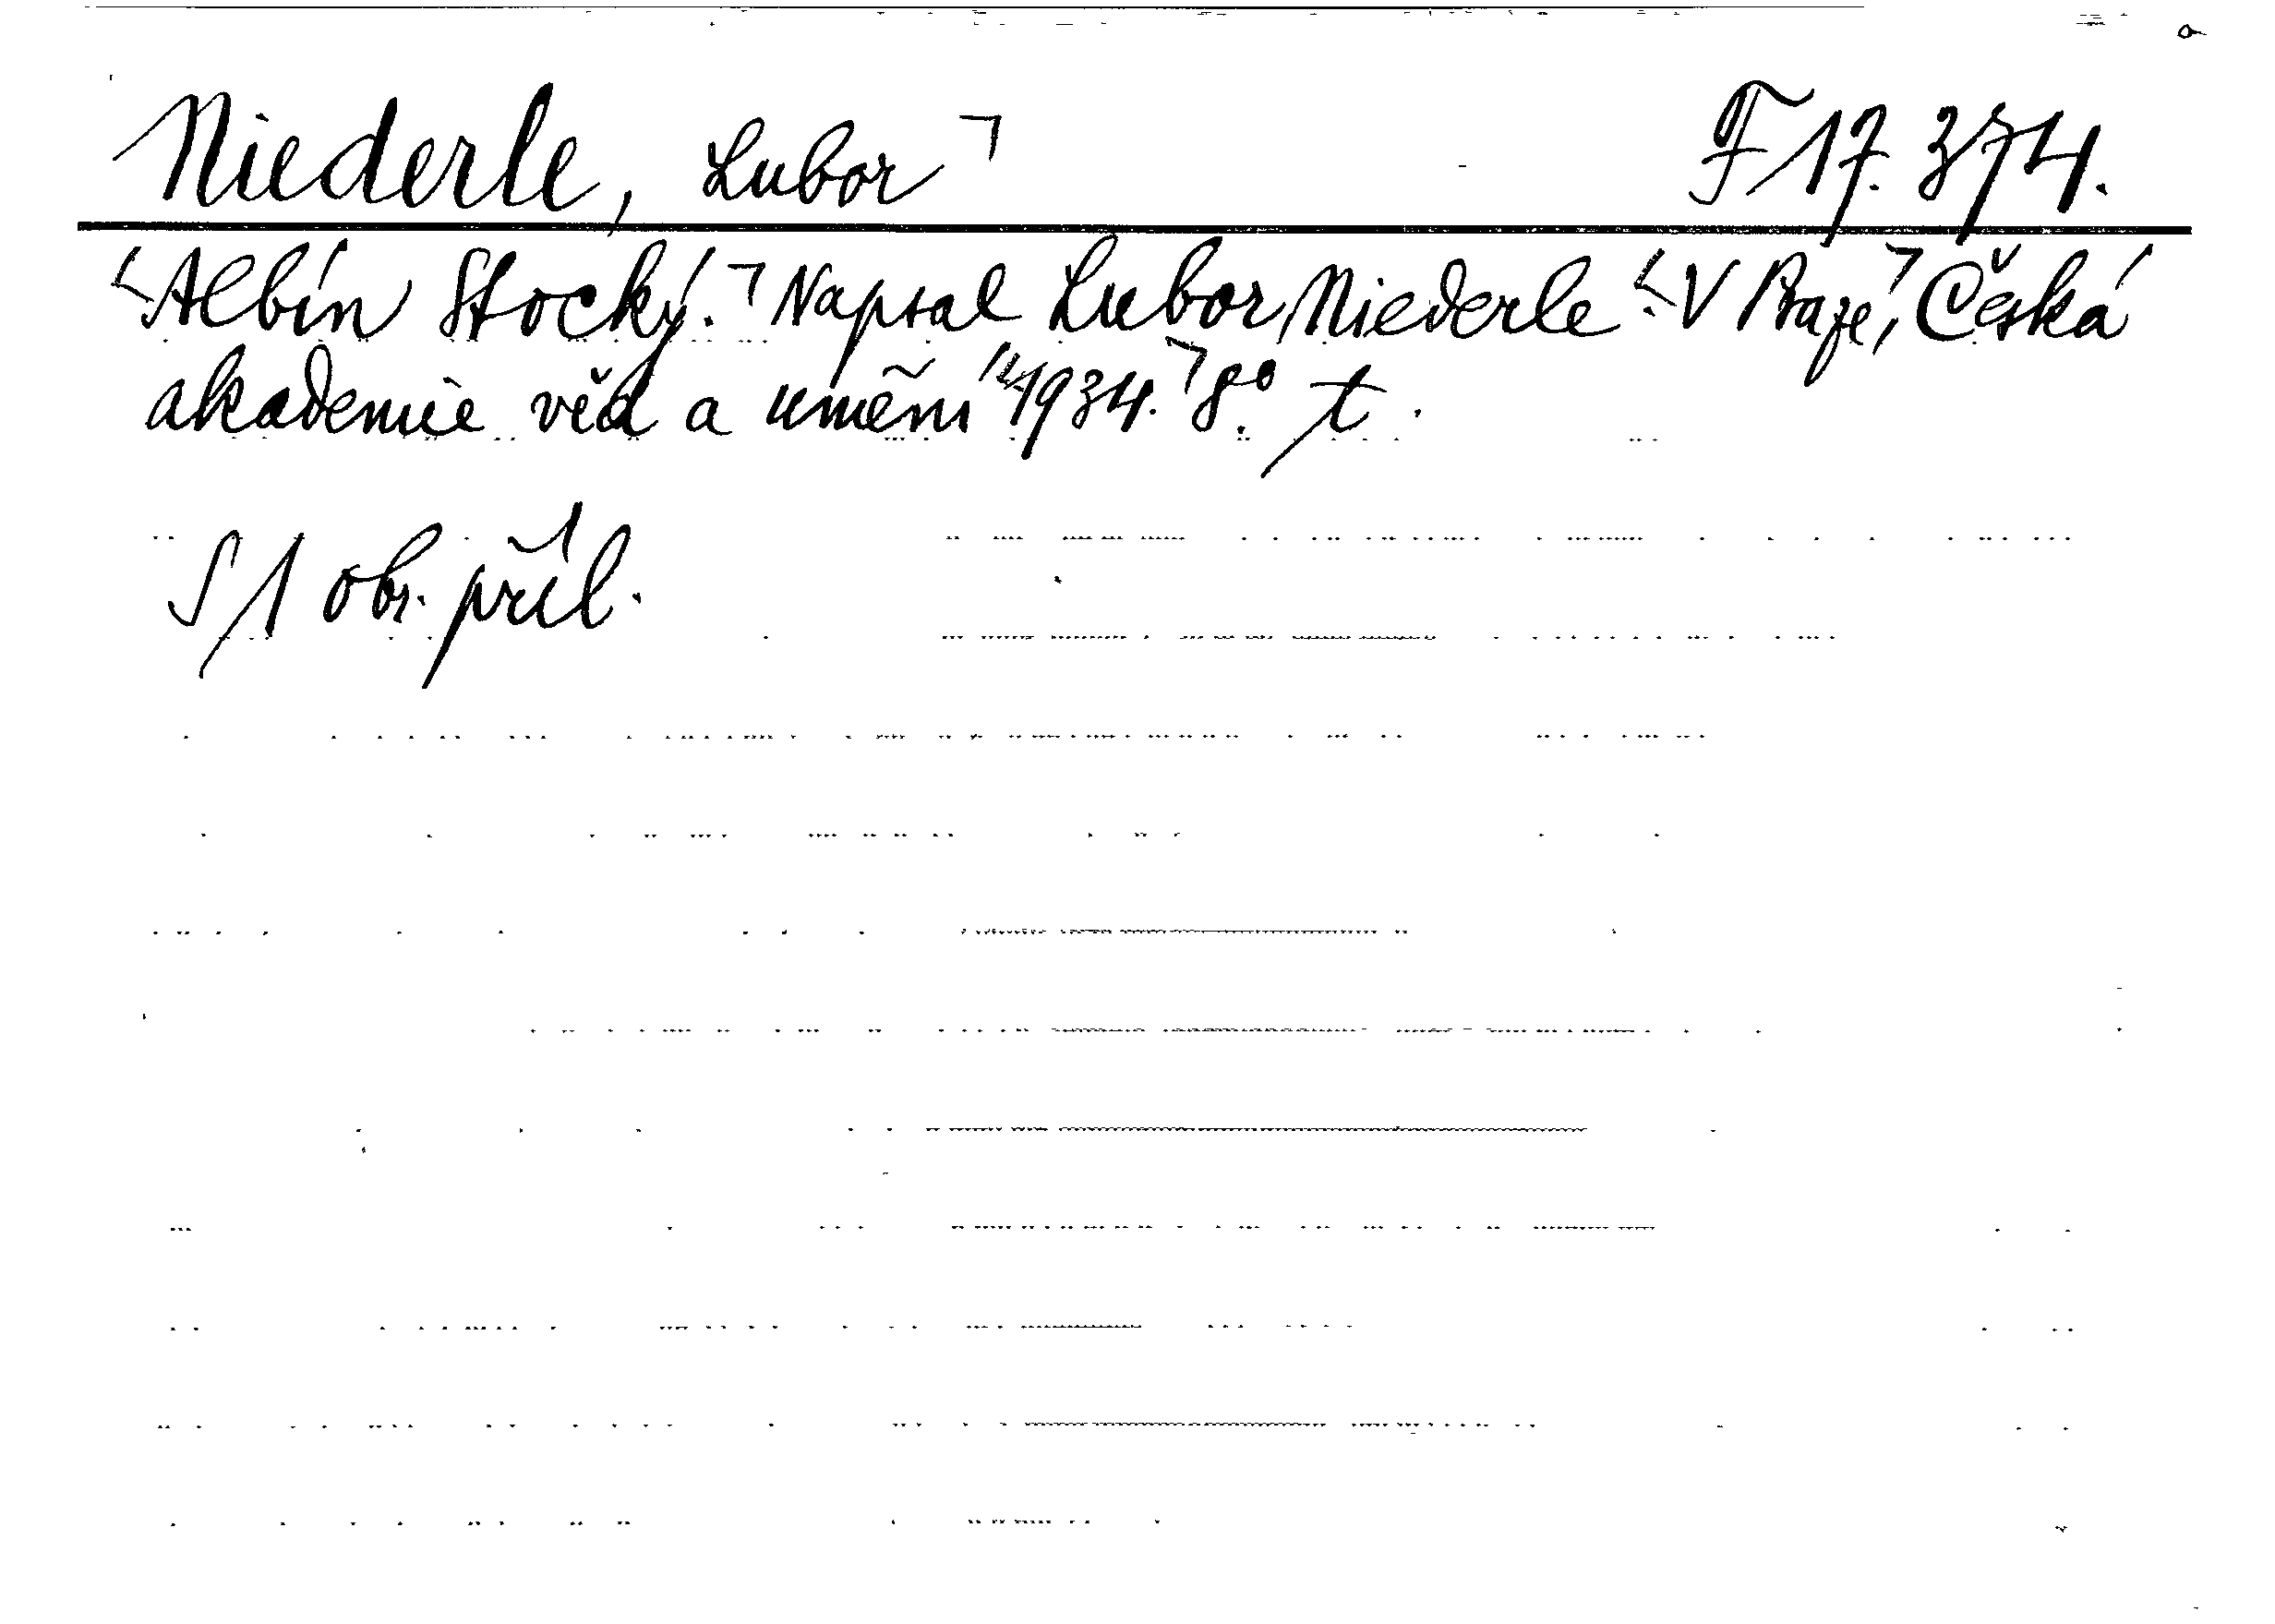 Niederle, Lubor ⌝ F 17.374.
⌞Albín Stocký.⌝ Napsal Lubor Niederle. ⌞V Praze,⌝ Česká
akademie věd a umění ⌞1934.⌝ 8°. t.
S 1 obr. příl.